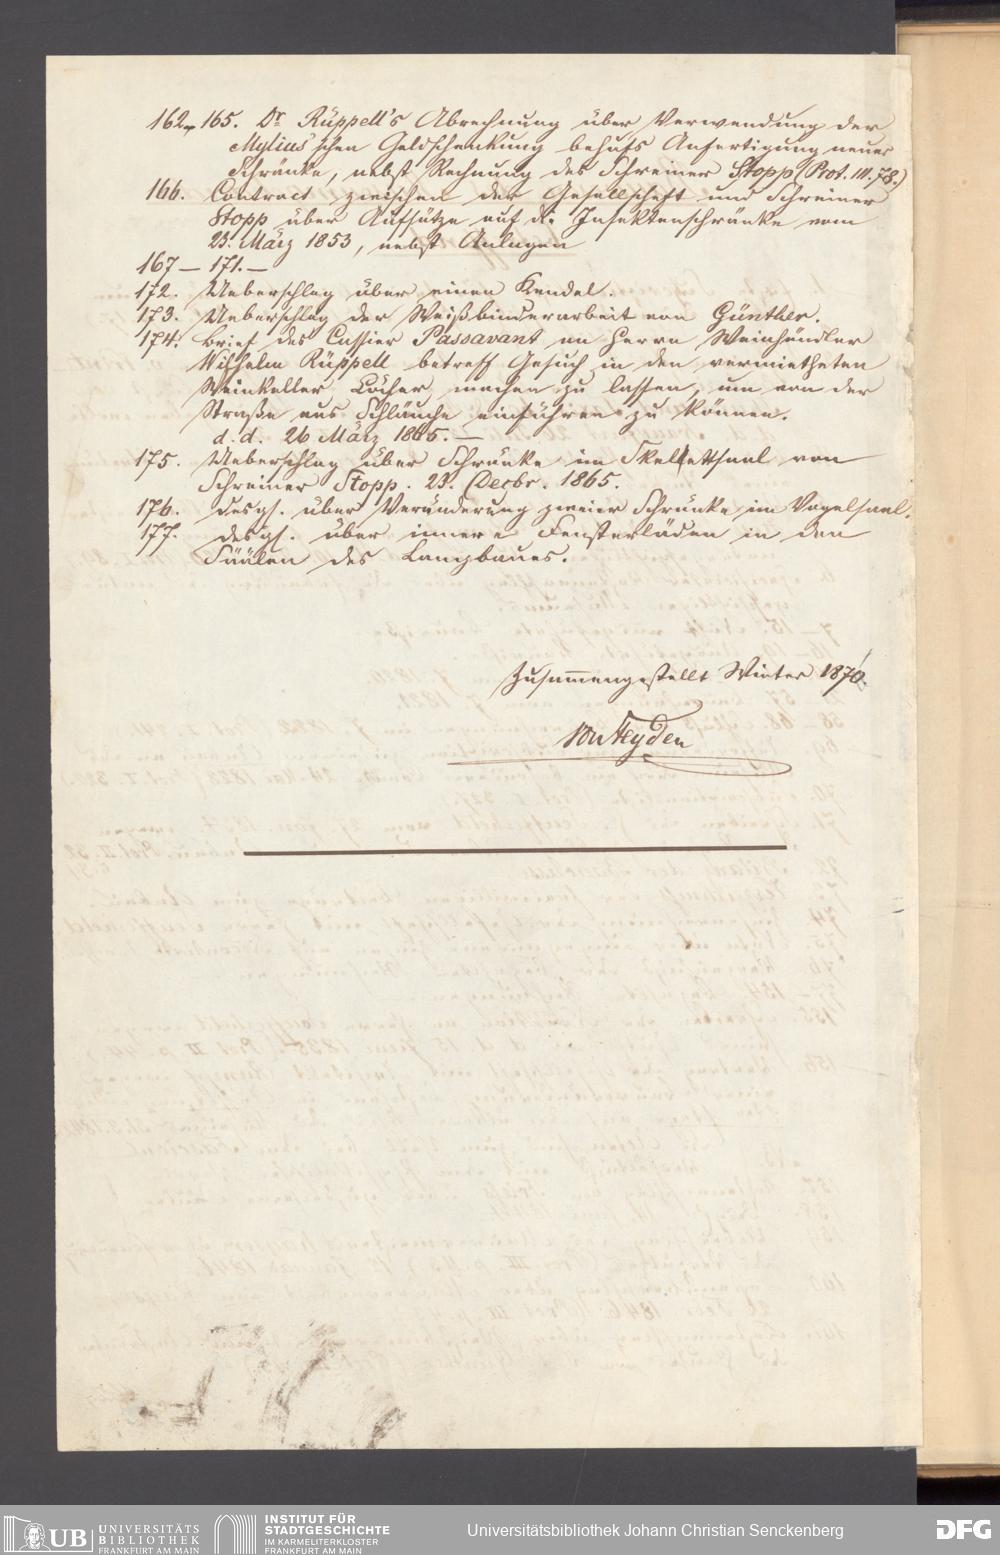 162–165. Dr Rüppell's Abrechnung über Verwendung der
Mylius'schen Geldschenkung behufs Anfertigung neuer
Schränke, nebst Rechnung des Schreiner Stopp (Prot. III. 78.)
166. Contract zwischen der Gesellschaft und Schreiner
Stopp über Aufsätze auf die Insektenschränke vom
23. März 1853, nebst Anlagen
167 – 171. –
172. Ueberschlag über einen Kendel.
173. Ueberschlag der Weißbinderarbeit von Günther.
174. Brief des Cassier Passavant an Herrn Weinhändler
Wilhelm Rüppell betreff Gesuch in den vermietheten
Weinkeller Löcher machen zu lassen, um von der
Straße aus Schläuche einführen zu können.
d. d. 26 März 1865. –
175. Ueberschlag über Schränke im Skelettsaal von
Schreiner Stopp. 23. Decbr. 1865.
176. desgl. über Veränderung zweier Schränke im Vogelsaal.
177. desgl. über innere Fensterläden in den
Säälen des Langbaues.
Zusammengestellt Winter 1870.
von Heyden
UB UNIVERSITÄTS
BIBLIOTHEK
FRANKFURT AM MAIN
INSTITUT FÜR
STADTGESCHICHTE
IM KARMELITERKLOSTER
FRANKFURT AM MAIN
Universitätsbibliothek Johann Christian Senckenberg
DFG